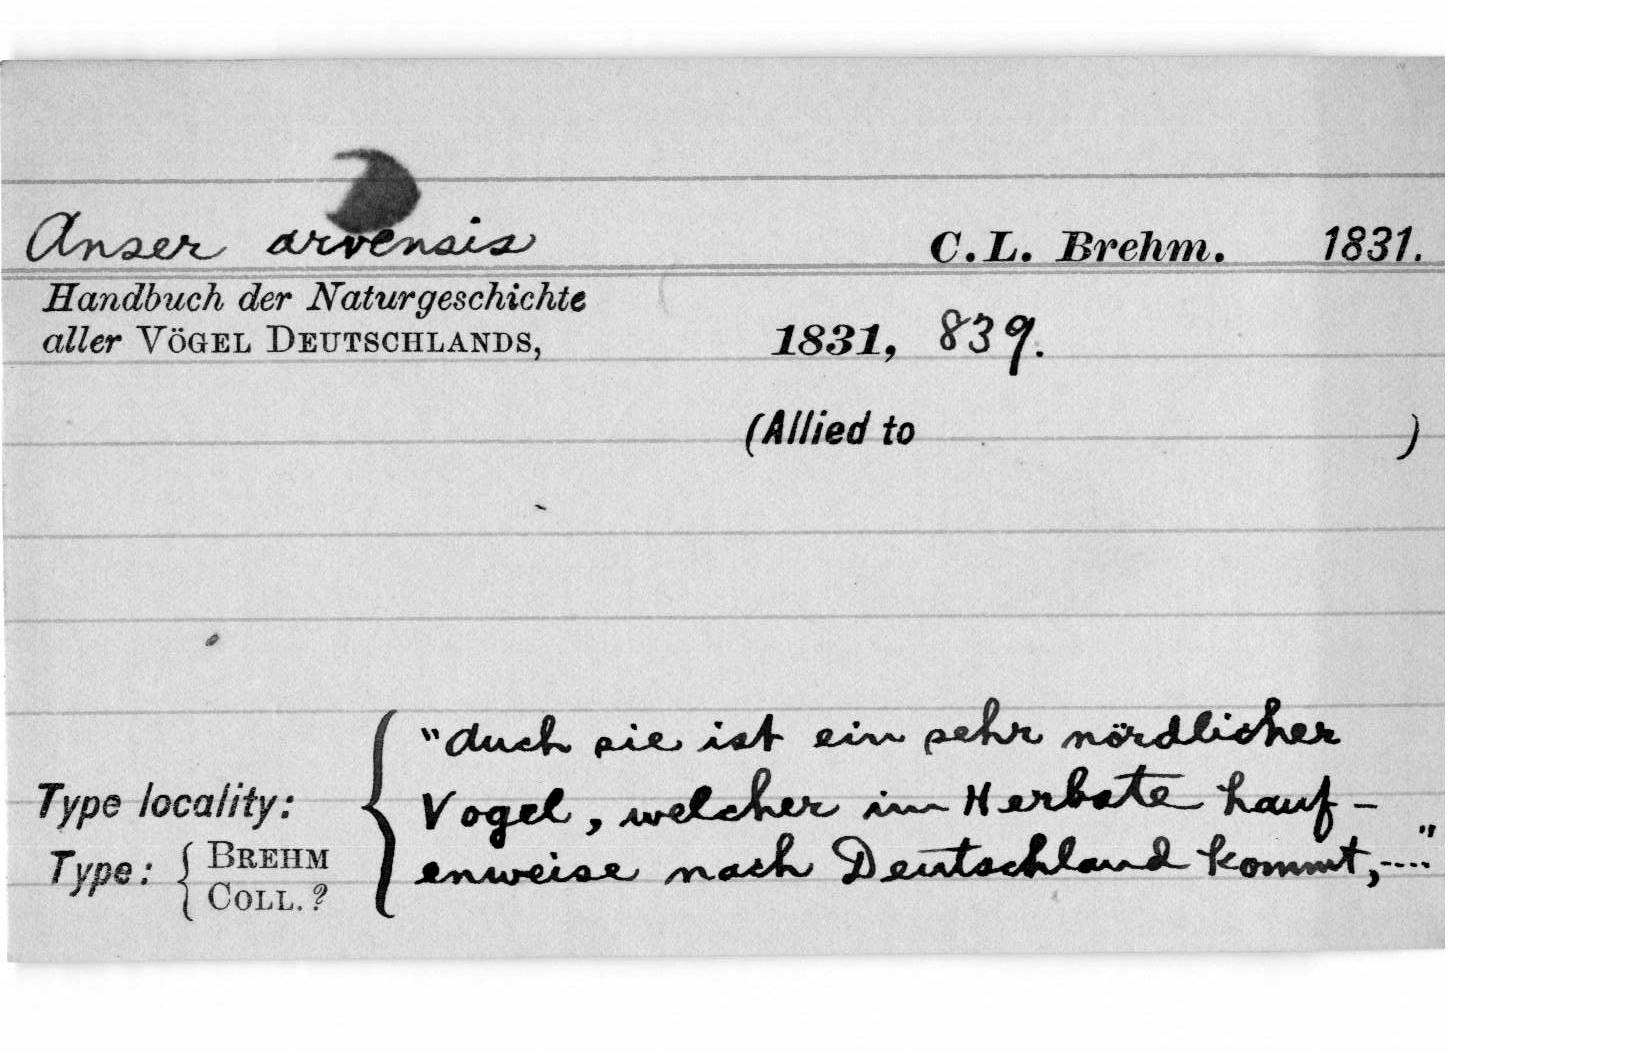 Anser arvensis C.L. Brehm. 1831.
Handbuch der Naturgeschichte
aller VÖGEL DEUTSCHLANDS, 1831, 839.
(Allied to )
"Auch sie ist ein sehr nördlicher
Type locality: Vogel, welcher im Herbste hauf-
enweise nach Deutschland kommt,----"
Type: BREHM
COLL.?